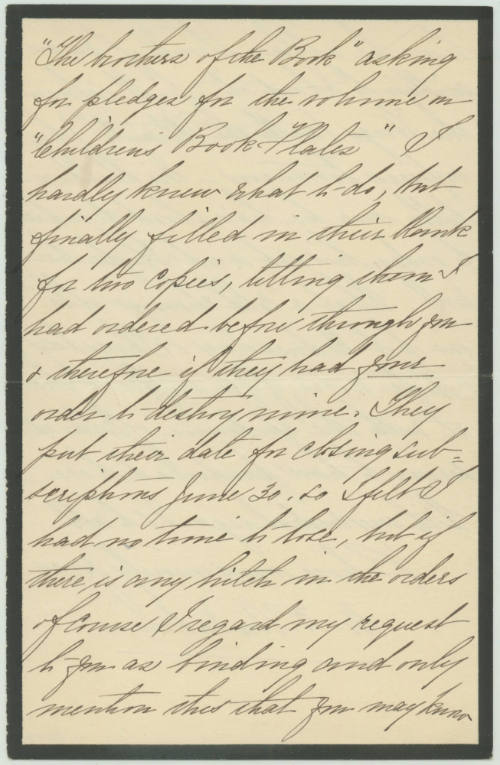 "The brothers of the Book" asking
for pledges for the volume on
"Childrens Book Plates" I
hardly knew what to do, but
finally filled in their blank
for two copies, telling them I
had ordered before through you
& therefore if they had your
order to destroy mine. They
put their date for closing sub=
scriptions June 30. so I felt I
had no time to lose, but if
there is any hitch in the orders
of course I regard my request
to you as binding and only
mention this that you may know